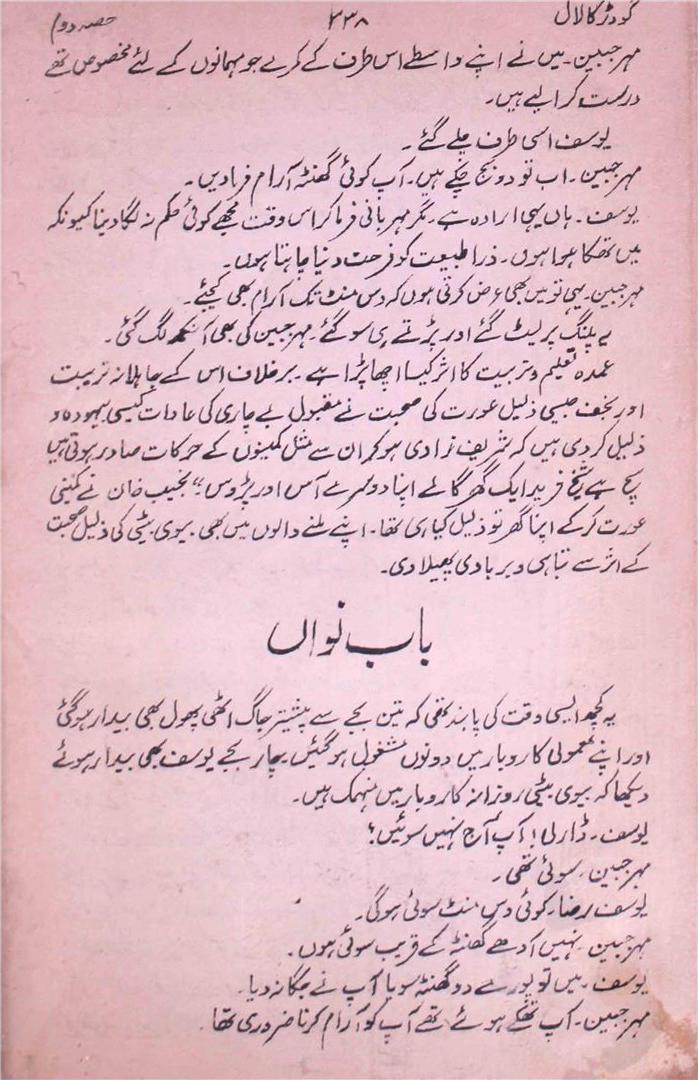 گودڑ کا لال ۲۳۸ حصہ دوم
مہر جبین۔ میں نے اپنے واسطے اس طرف کے کمرے جو مہمانوں کے لئے مخصوص تھے
درست کرا لیے ہیں۔
یوسف اسی طرف چلے گئے۔
مہر جبین۔ اب تو دو بج چکے ہیں۔ آپ کوئی گھنٹہ آرام فرما دیں۔
یوسف۔ ہاں یہی ارادہ ہے۔ مگر مہربانی فرما کر اس وقت مجھے کوئی حکم نہ لگا دینا کیونکہ
میں تھکا ہوا ہوں۔ ذرا طبیعت کو فرحت دنیا چاہتا ہوں۔
مہر جبین۔ یہی تو میں بھی عرض کرتی ہوں کہ دس منٹ تک آرام بھی کیجئے۔
یہ پلنگ پر لیٹ گئے اور پڑتے ہی سو گئے۔ مہر جبین کی بھی آنکھ لگ گئی۔
عمدہ تعلیم و تربیت کا اثر کیسا اچھا پڑا ہے۔ برخلاف اس کے جاہلانہ تربیت
اور نجف جیسی ذلیل عورت کی صحبت نے مقبول بے چاری کی عادات کیسی بیہودہ و
ذلیل کر دی ہیں کہ شریف زادی ہو کر ان سے مثل کمینوں کے حرکات صادر ہوتی ہیں
سچ ہے شیخ فرید ایک گھر گالے اپنا دوسرے آس اور پڑوس؛“ نجیب خان نے کمینی
عورت کر کے اپنا گھر تو ذلیل کیا ہی تھا۔ اپنے ملنے والوں میں بھی۔ بیوی بیٹی کی ذلیل صحبت
کے اثر سے تباہی و بربادی پھیلا دی۔
باب نواں
یہ کچھ ایسی وقت کی پابند تھی کہ تین بجے سے پیشتر جاگ اٹھی پھول بھی بیدار ہو گئی
اور اپنے معمولی کاروبار میں دونوں مشغول ہو گئیں۔ چار بجے یوسف بھی بیدار ہوئے
دیکھا کہ بیوی بیٹی روزانہ کاروبار میں منہمک ہیں۔
یوسف۔ ڈارلی! آپ آج نہیں سوئیں؟
مہر جبین۔ سوئی تھی۔
یوسف رضا۔ کوئی دس منٹ سوئی ہوگی۔
مہر جبین۔ نہیں آدھے گھنٹہ کے قریب سوئی ہوں۔
یوسف۔ میں تو پورے دو گھنٹہ سویا آپ نے جگا نہ دیا۔
مہر جبین۔ آپ تھکے ہوئے تھے آپ کو آرام کرنا ضروری تھا۔